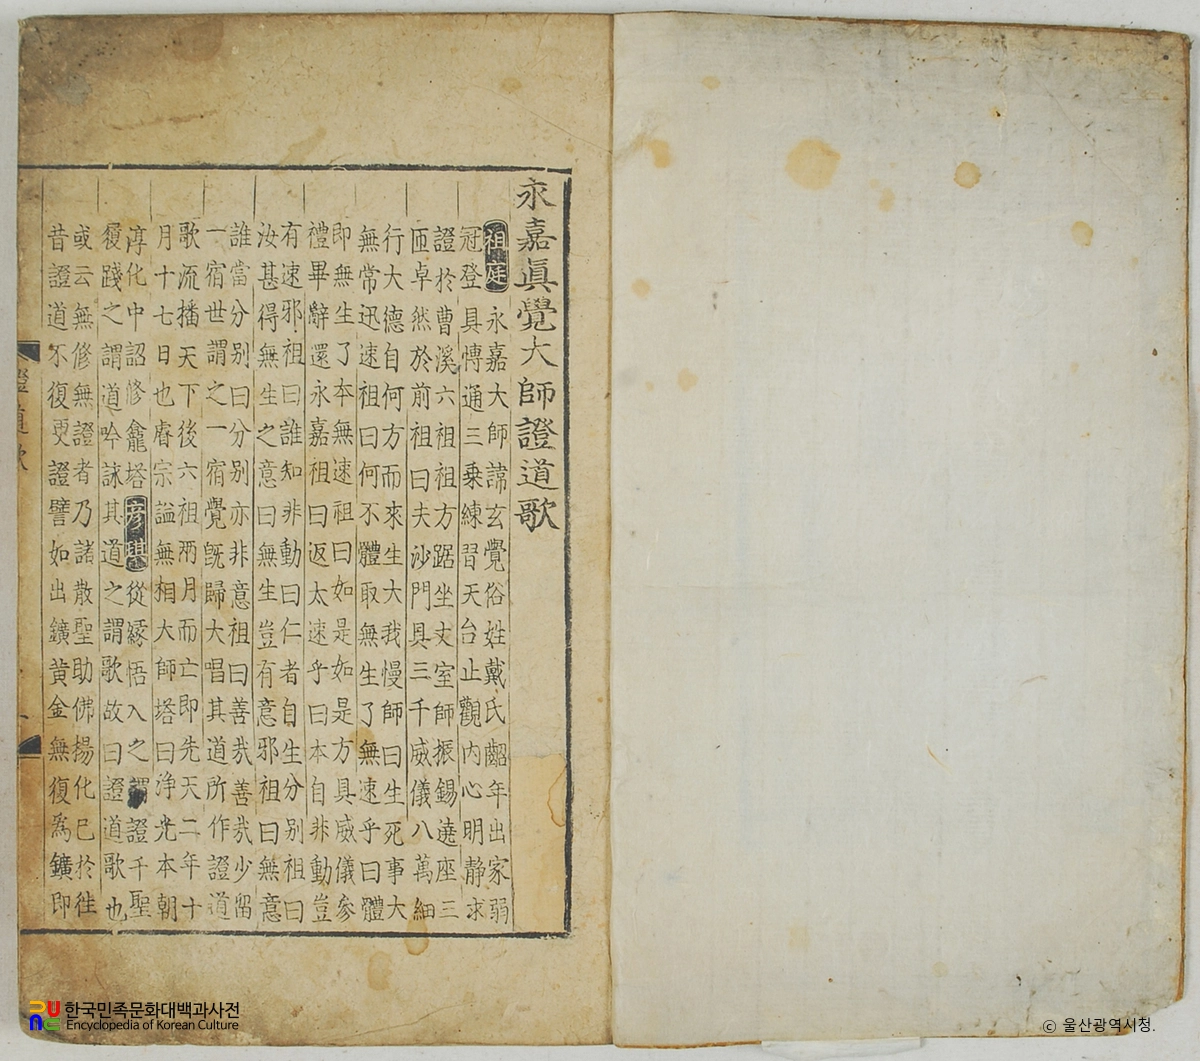 永嘉眞覺大師證道歌
祖庭 永嘉大師諱玄覺俗姓戴氏齠年出家弱
冠登具博通三乗練習天台止觀内心明静求
證於曹溪六祖祖方踞坐丈室師振錫遶座三
匝卓然於前祖曰夫沙門具三千威儀八萬細
行大德自何方而來生大我慢師曰生死事大
無常迅速祖曰何不體取無生了無速乎曰體
即無生了本無速祖曰如是如是方具威儀參
禮畢辭還永嘉祖曰返太速乎曰本自非動豈
有速邪祖曰誰知非動曰仁者自生分别祖曰
汝甚得無生之意曰無生豈有意邪祖曰無意
誰當分别曰分别亦非意祖曰善㢤善㢤少留
一宿世謂之一宿覺旣歸大唱其道所作證道
歌流播天下後六祖兩月而亡即先天二年十
月十七日也睿宗謚無相大師塔曰淨光本朝
淳化中詔修龕塔 彦琪 從緣悟入之謂證千聖
履踐之謂道吟詠其道之謂歌故曰證道歌也
或云無修無證者乃諸散聖助佛揚化已於徃
昔證道不復更證譬如出鑛黄金無復爲鑛即
證道歌
한국민족문화대백과사전
Encyclopedia of Korean Culture
ⓒ 울산광역시청.